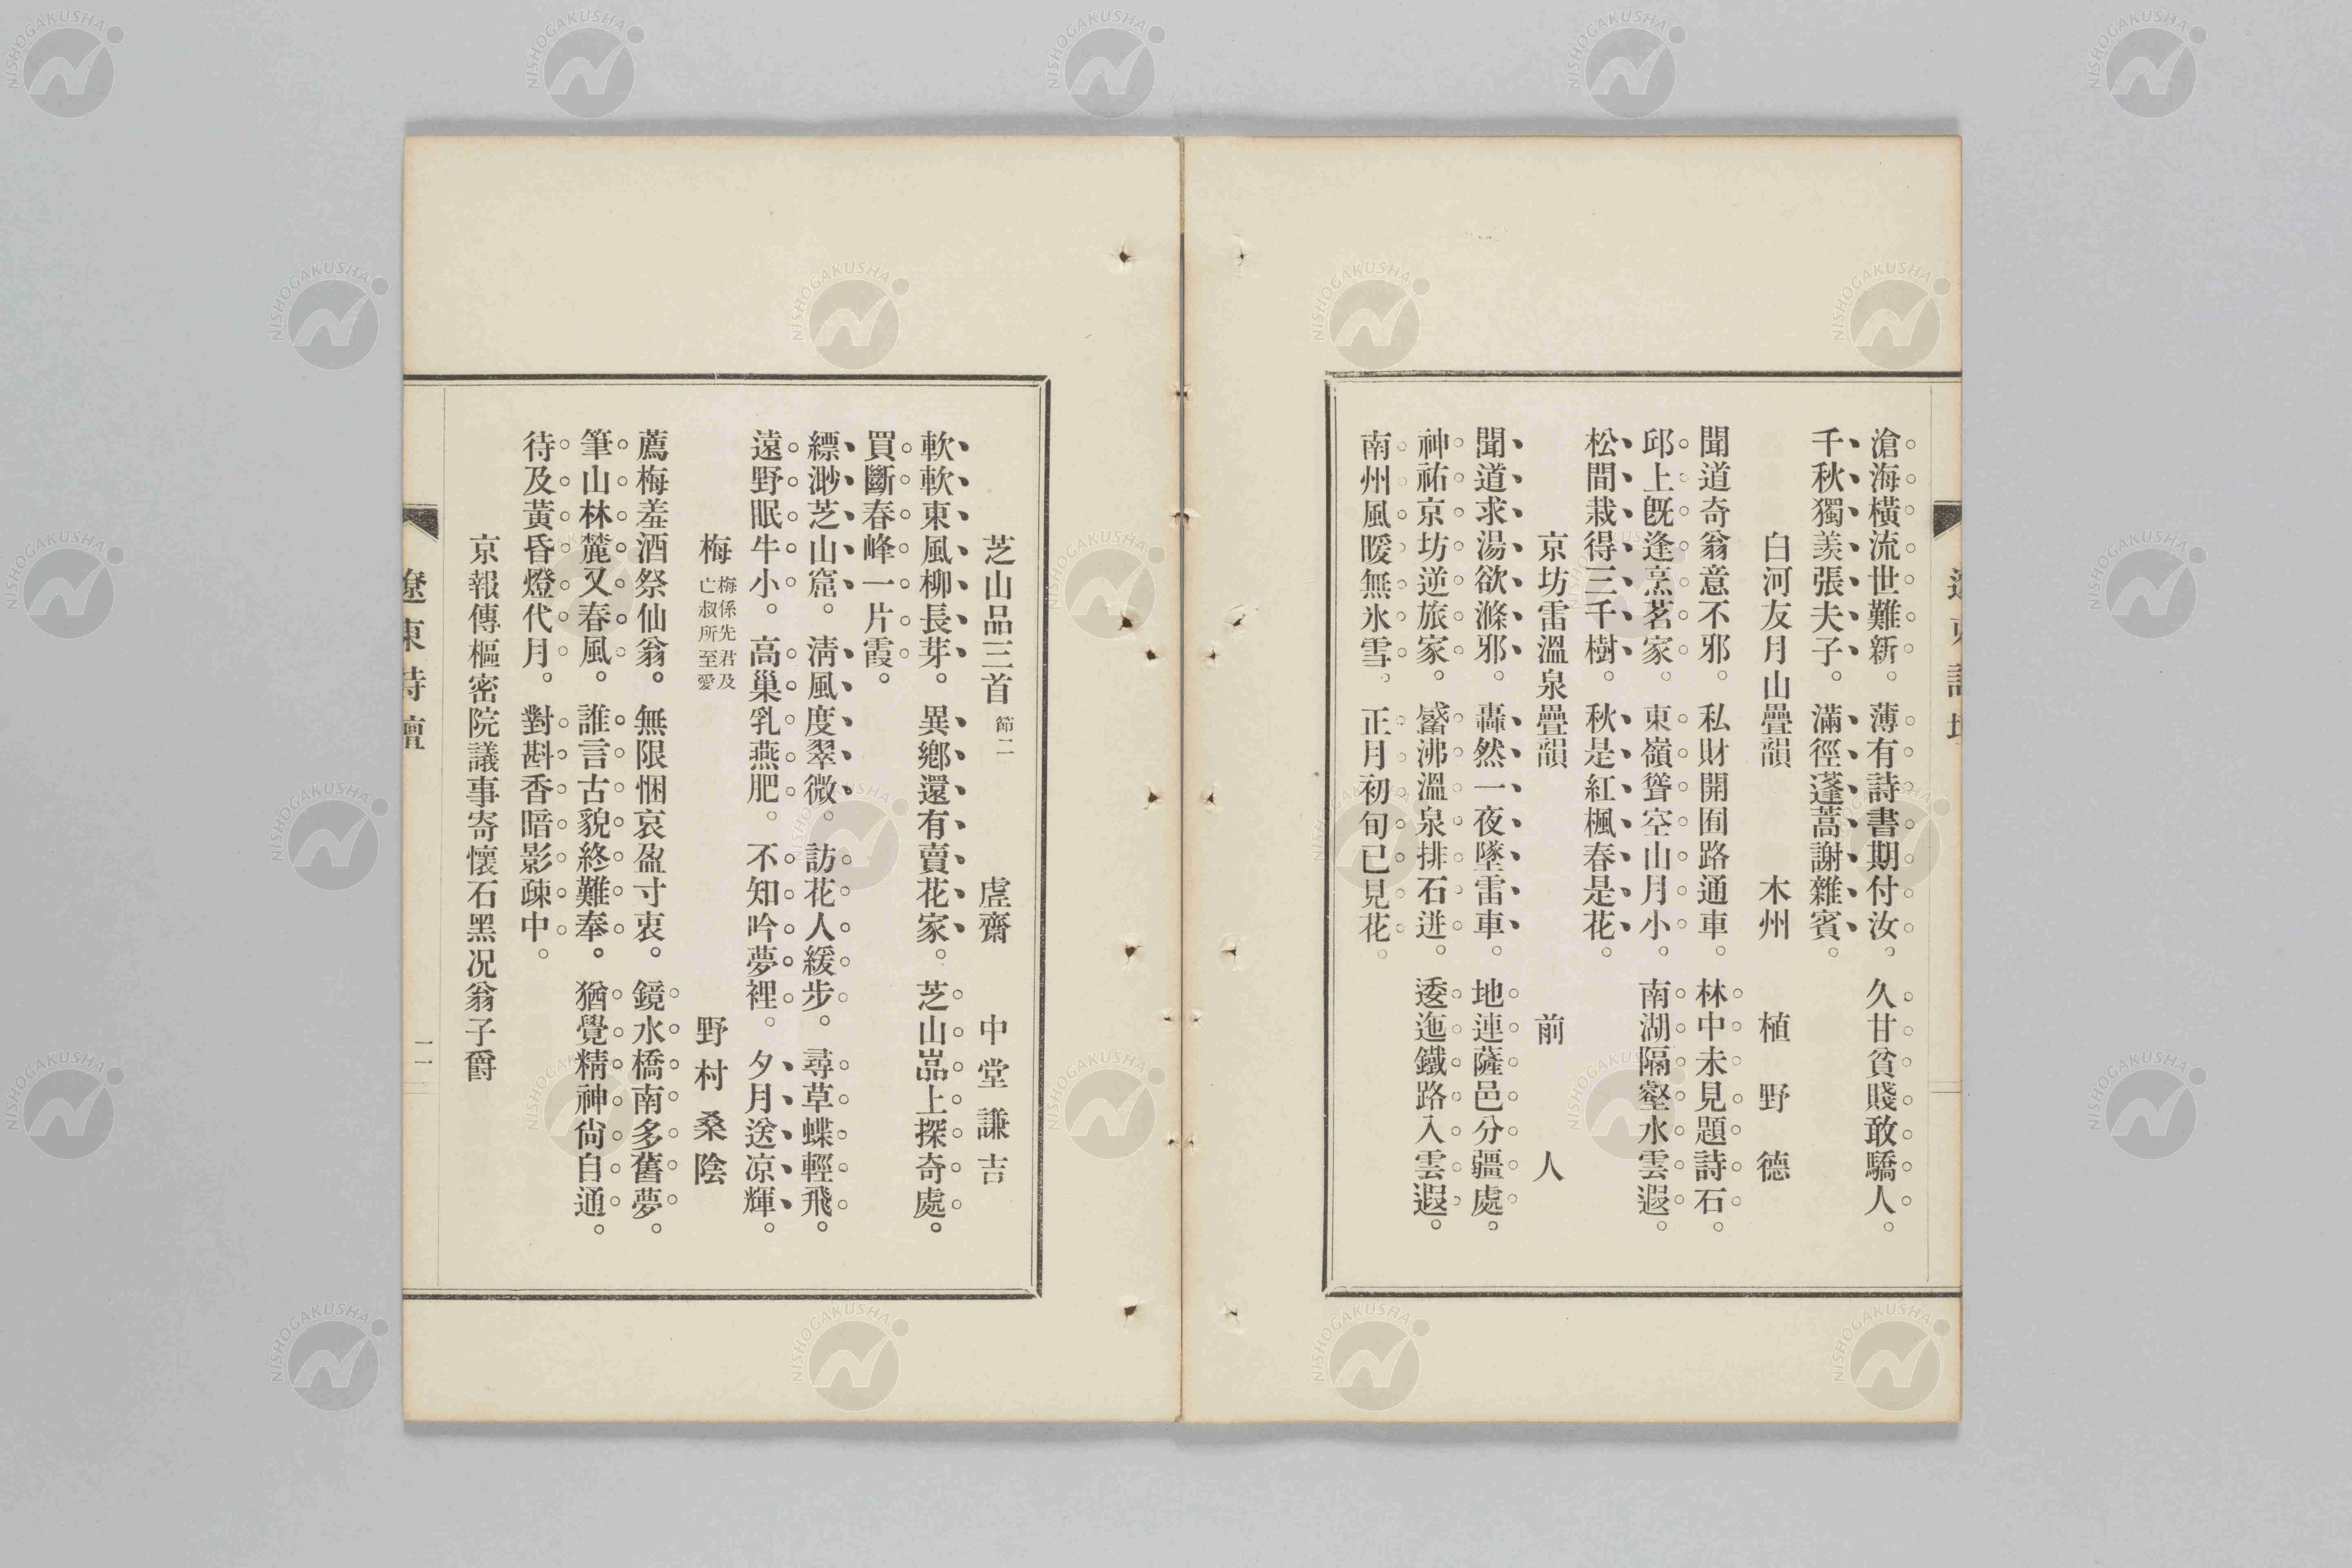 滄海橫流世難新。薄有詩書期付汝。久甘貧賤敢驕人。
千秋獨羨張夫子。滿徑蓬蒿謝雜賓。
白河友月山疊韻 木州 植野德
聞道奇翁意不邪。私財開囿路通車。林中未見題詩石。
邱上旣逢烹茗家。東嶺聳空山月小。南湖隔壑水雲遐。
松間栽得三千樹。秋是紅楓春是花。
京坊雷溫泉疊韻 前人
聞道求湯欲滌邪。轟然一夜墜雷車。地連薩邑分疆處。
神祐京坊逆旅家。觱沸溫泉排石迸。逶迤鐵路入雲遐。
南州風暖無氷雪。正月初旬已見花。
芝山品三首 節二 虛齋 中堂謙吉
軟軟東風柳長芽。異鄕還有賣花家。芝山嵓上探奇處。
買斷春峰一片霞。
縹渺芝山窟。淸風度翠微。訪花人緩步。尋草蝶輕飛。
遠野眠牛小。高巢乳燕肥。不知吟夢裡。夕月送凉輝。
梅 梅係先君及亡叔所至愛 野村桑陰
薦梅羞酒祭仙翁。無限悃哀盈寸衷。鏡水橋南多舊夢。
筆山林麓又春風。誰言古貌終難奉。猶覺精神尙自通。
待及黃昏燈代月。對斟香暗影疎中。
京報傳樞密院議事寄懷石黑况翁子爵
遼東詩壇
二
NISHOGAKUSHA